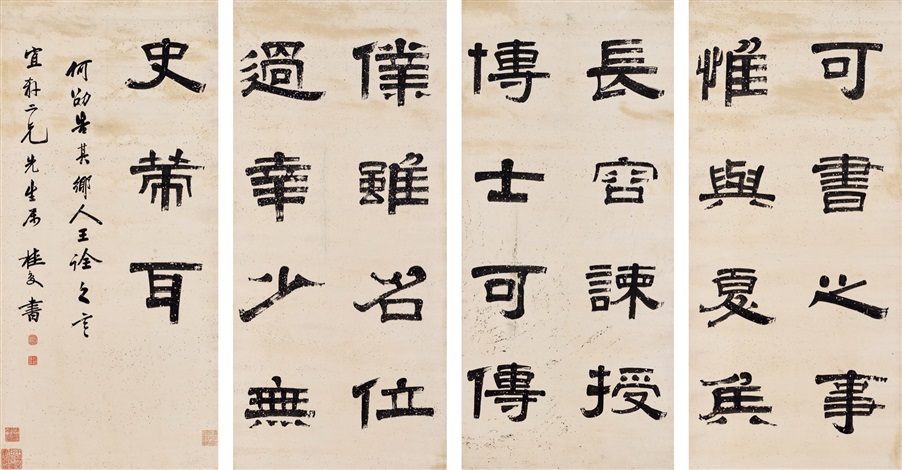 可書之事
惟與夏侯
長容諫授
博士可傳
僕雖名位
過幸少無
史策耳
何劭是其鄉人王詮之言
宜存二兄先生屬 桂馥書